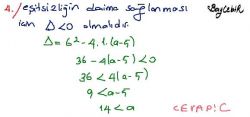 4./eşitsizliğin daima sağlanması
için Δ<0 olmalıdır.
Δ=6²-4.1.(a-5)
36-4(a-5)<0
36<4(a-5)
9<a-5
14<a
CEVAP: C